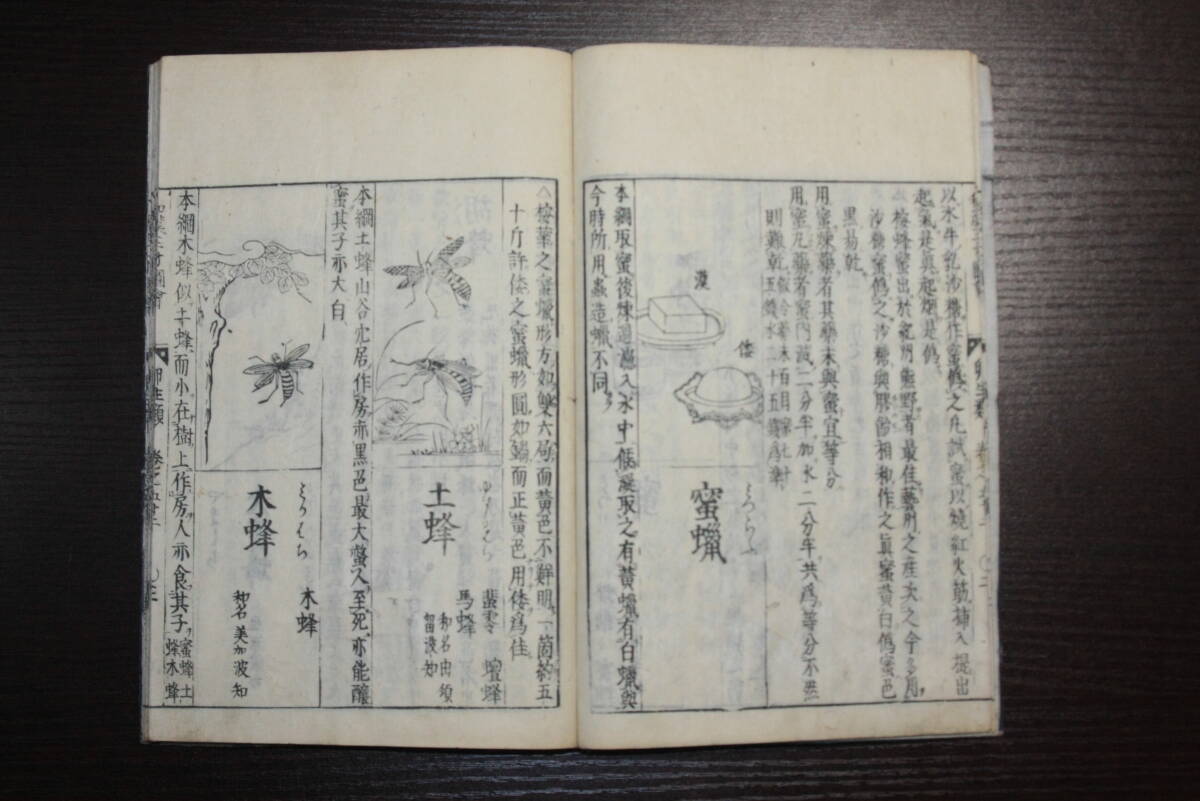 以水牛乳沙糖作蜜偽之凡試蜜以燒紅火筯插入提出
起氣是真起烟是偽
△按蜂蜜出於紀州熊野者最佳藝州之産次之今多用
沙糖蜜偽之沙糖與膠飴相和作之眞蜜黄白偽蜜色
黒易乾
用蜜煉藥者其藥末與蜜宜等分
用蜜丸藥若蜜
水二分半共爲等分不然
則難乾
漢
倭
蜜蠟
みつらふ
本綱取蜜後煉過濾入水中候凝取之有黄蠟有白蠟與
今時所用蟲造蠟不同
△按華之蜜蠟形方如雙六局而黄色不鮮明一箇約五
十斤許倭之蜜蠟形圓如鏡而正黄色用倭爲佳
土蜂
蜚零
蟺蜂
馬蜂
和名由須
留波知
本綱土蜂山谷穴居作房赤黒色最大螫人至死亦能釀
蜜其子亦大白
木蜂
みかはち
木蜂
和名美加波知
本綱木蜂似土蜂而小在樹上作房人亦食其子
蜜蜂土
蜂木蜂
和漢三才圖會
卵生類
卷之五十二
○三